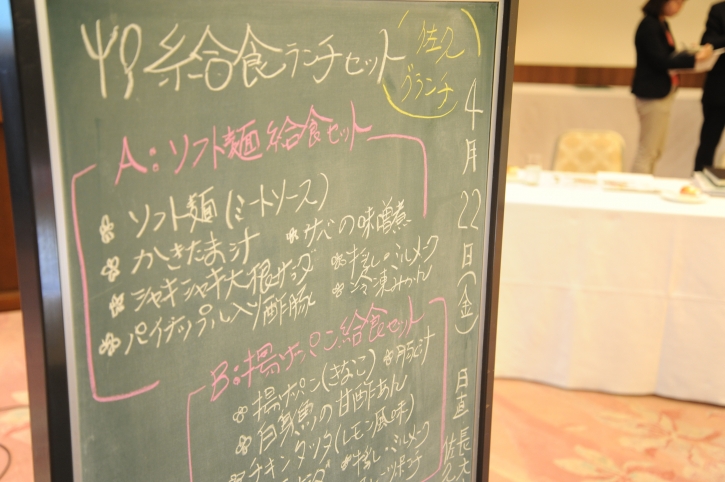 給食ランチセット
(佐久
ブランチ)
A:ソフト麺給食セット
ソフト麺(ミートソース)
かきたま汁
サバの味噌煮
シャキシャキ大根サラダ
推し・ミルメーク
パイナップル入り酢豚
冷凍みかん
B:揚げパン給食セット
揚げパン(きなこ)
豚汁
白身魚の甘酢あん
チキンタツタ(レモン風味)
4月22日(金)
日直